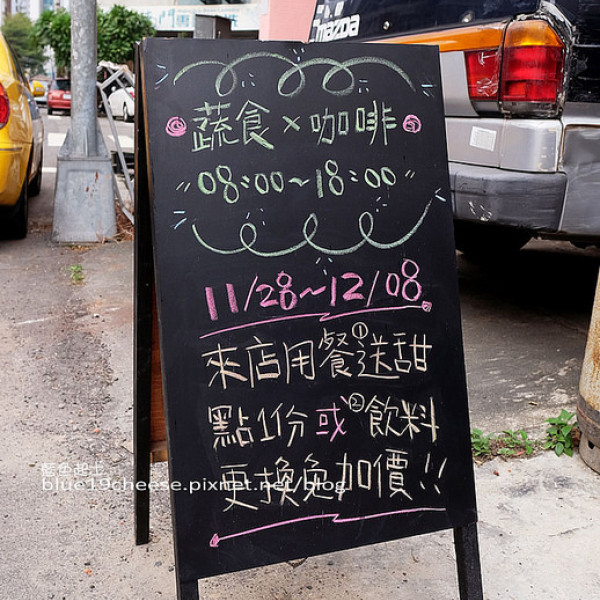 mazda
蔬食×咖啡
"08:00~18:00"
11/28~12/08
來店用餐①送甜
點1份或②飲料
更換免加價!!
藍色起士
blue19cheese.pixnet.net/blog